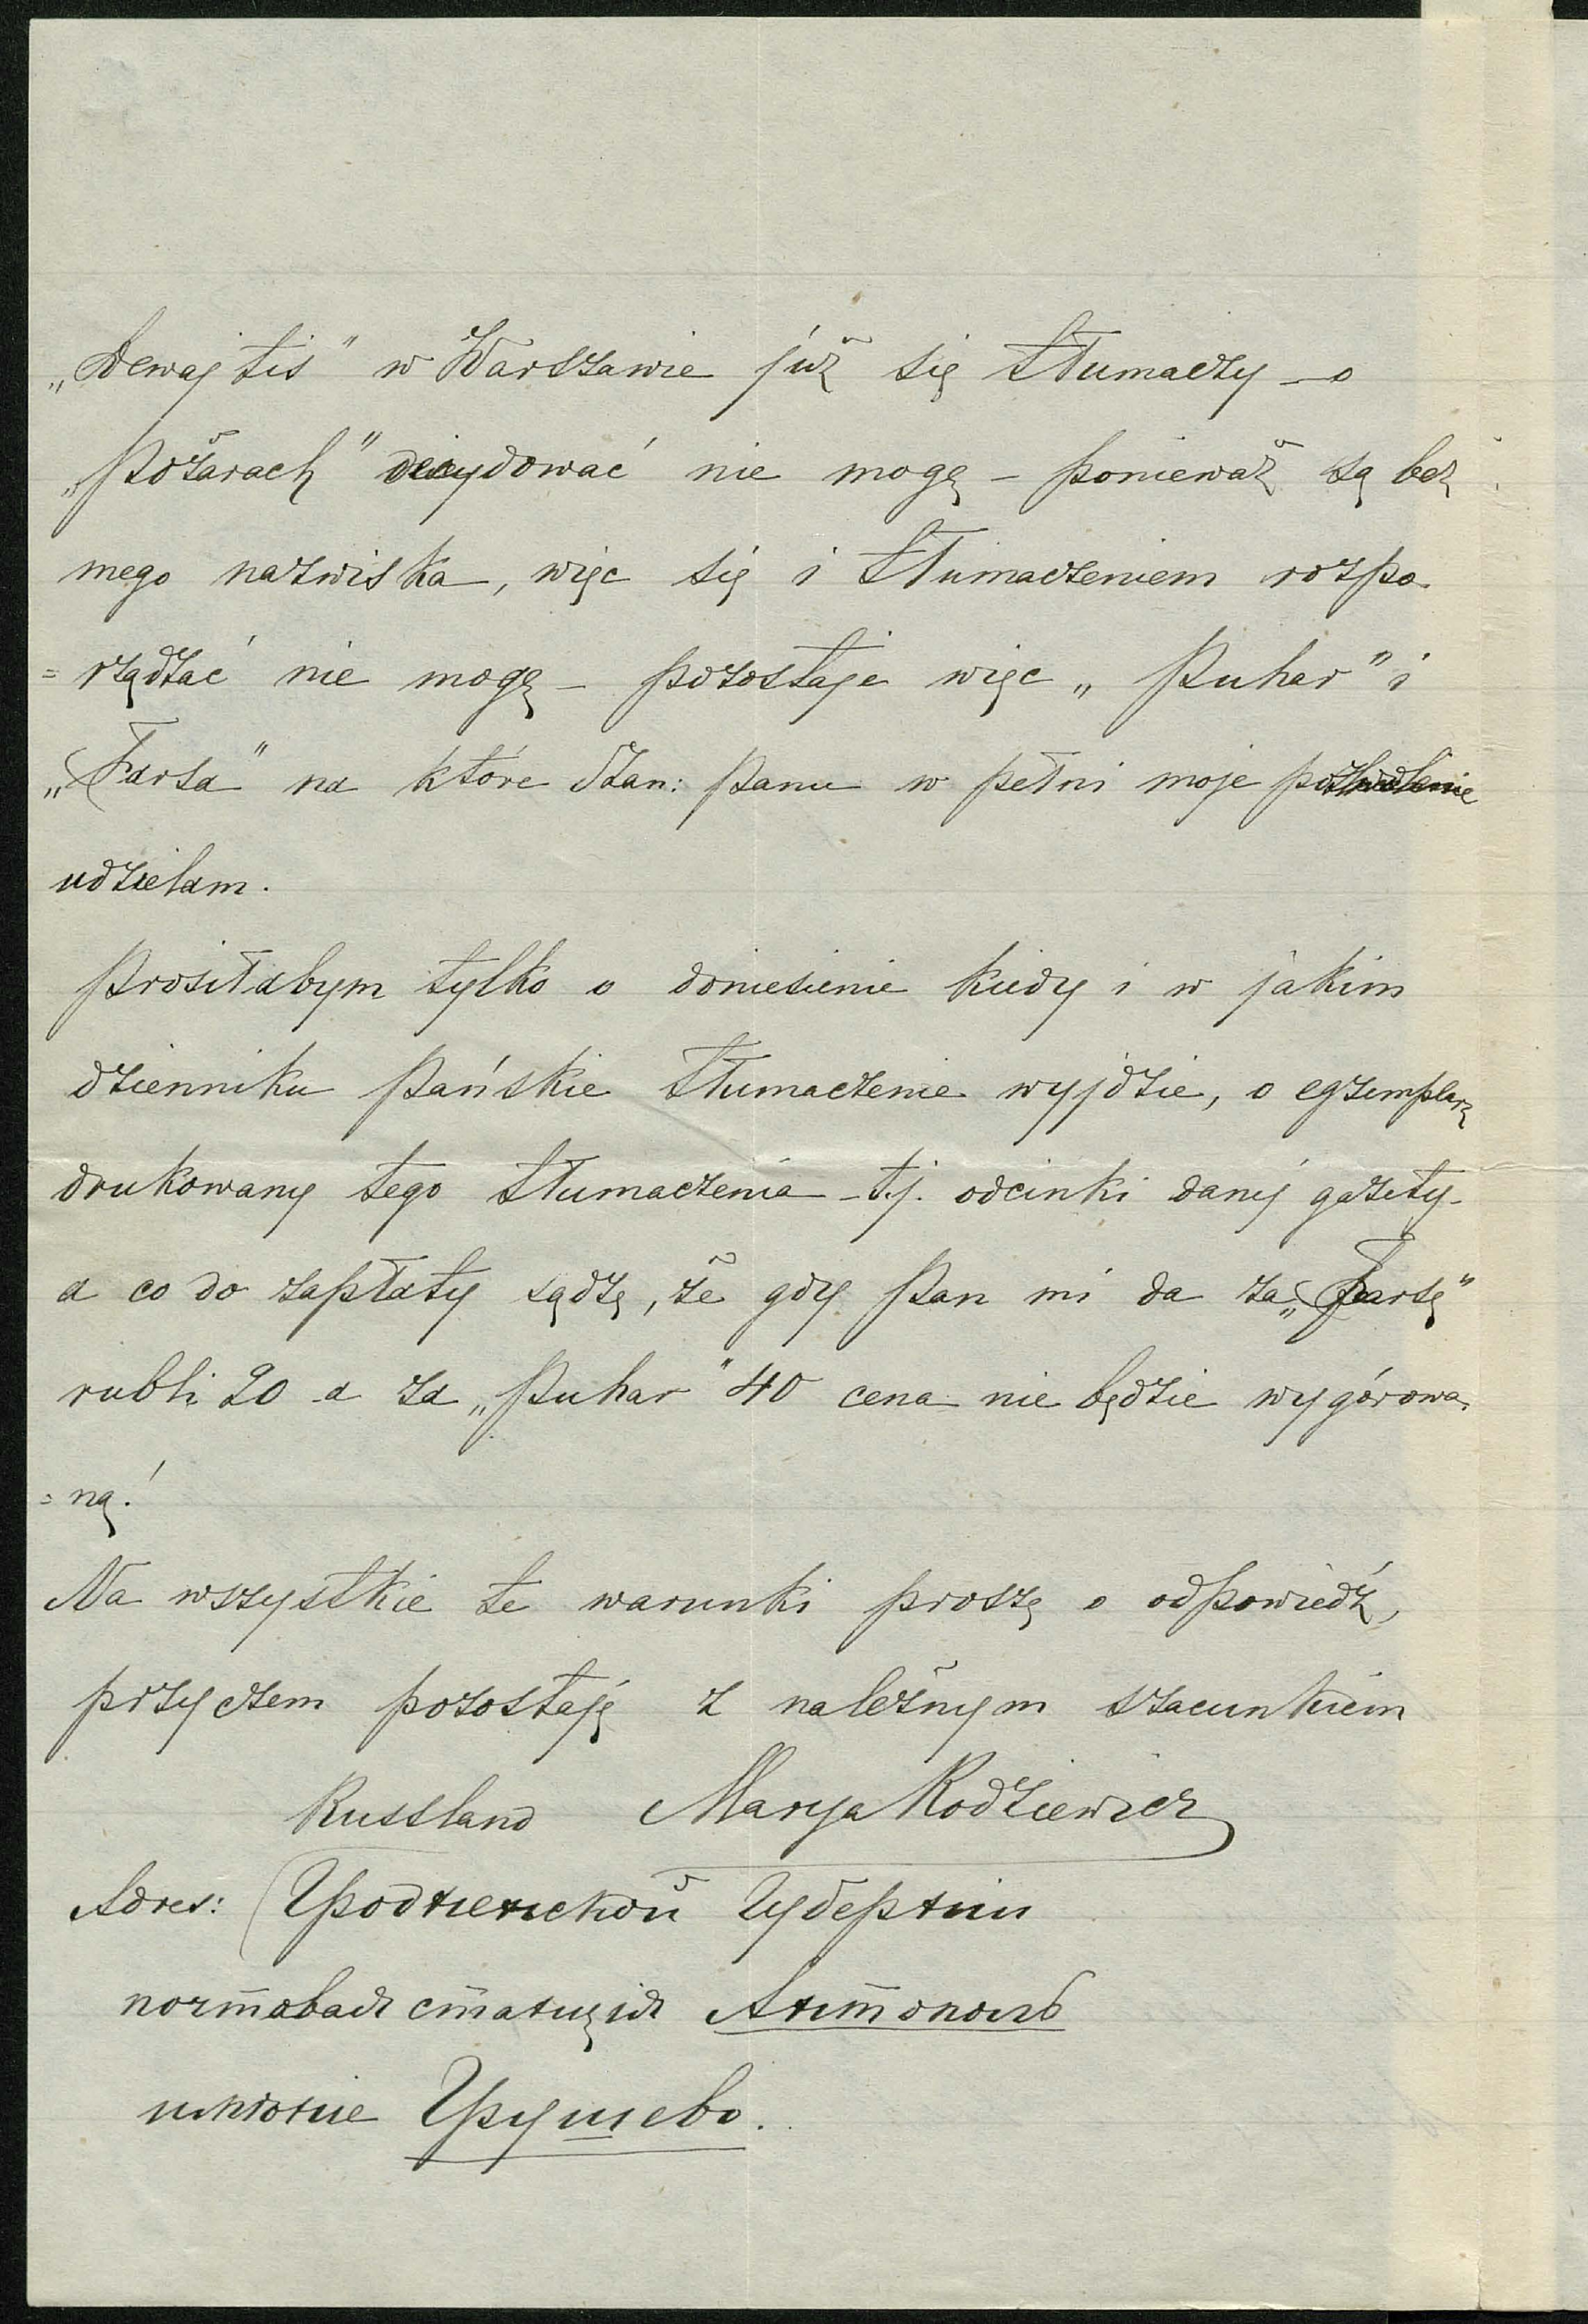 „Dewajtis" w Warszawie już się tłumaczy – o
„Pożarach" decydować nie mogę – ponieważ są bez
mego nazwiska, więc się i tłumaczeniem rozpo-
=rządzać nie mogę – pozostaje więc „Puhar" i
„Farsa" na które Szan: Panu w pełni moje pozwolenie
udzielam.
Prosiłabym tylko o doniesienie kiedy i w jakim
dzienniku Pańskie tłumaczenie wyjdzie, o egzemplarz
drukowany tego tłumaczenia – t.j. odcinki danej gazety –
a co do zapłaty sądzę, że gdy Pan mi da za „Farsę"
rubli 20 a za „Puhar" 40 cena nie będzie wygórowa-
=ną!
Na wszystkie te warunki proszę o odpowiedź,
przyczem pozostaję z należnym szacunkiem
Russland Marya Rodziewicz
Adres: Гродненской Губернии
почтовая станція Антополь
имѣніе Грушево.